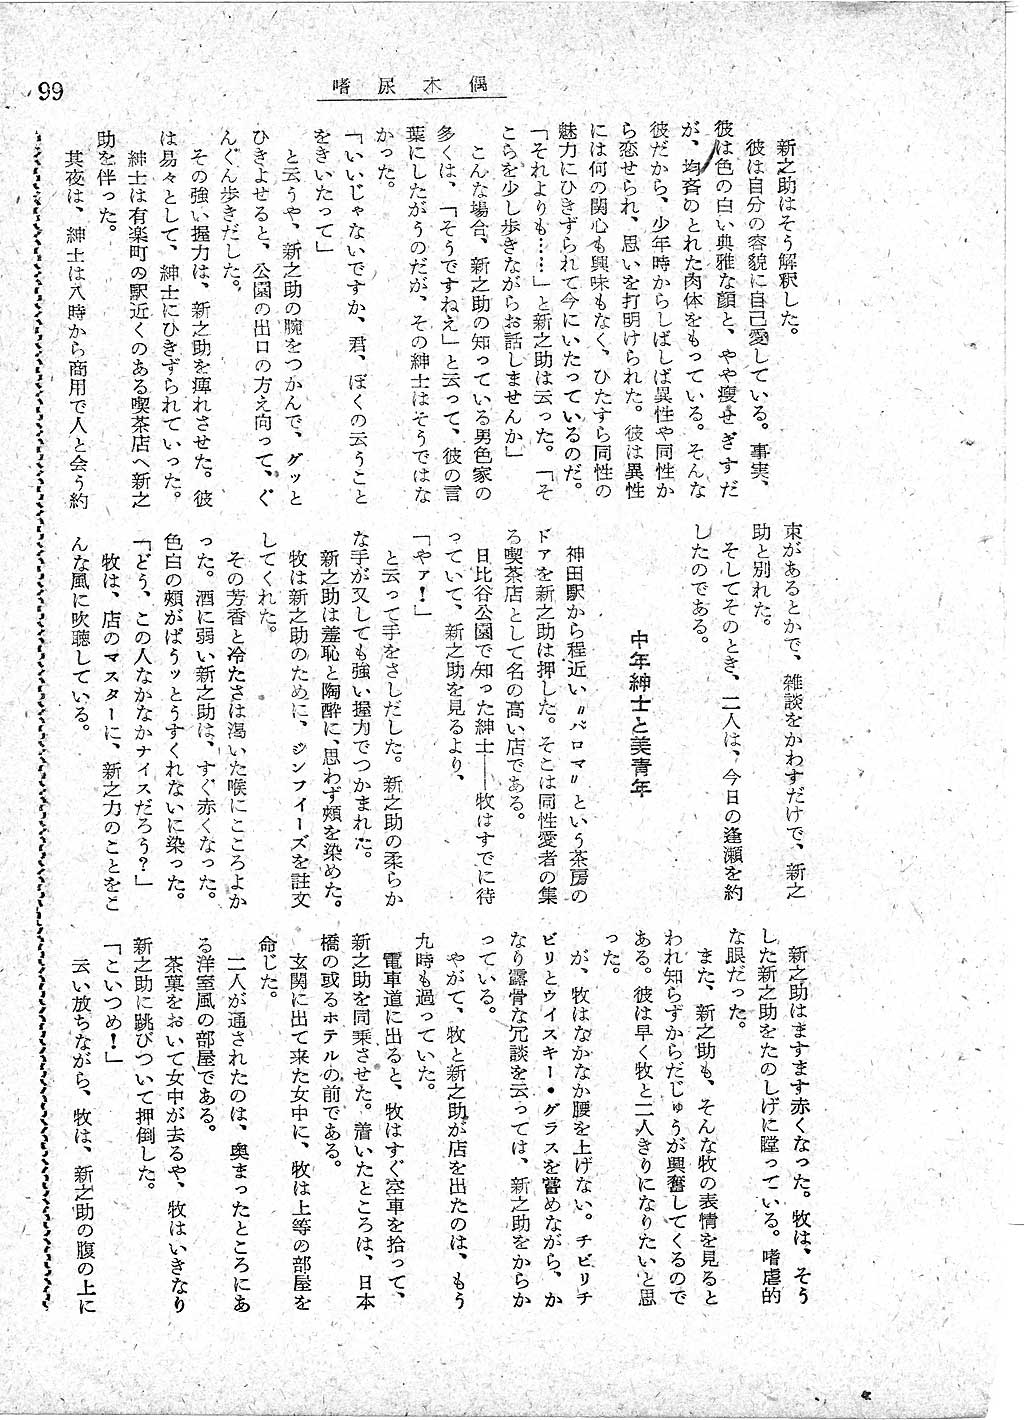 99
嗜尿木偶
新之助はそう解釈した。
彼は自分の容貌に自己愛している。事実、
彼は色の白い典雅な顔と、やや瘦せぎすだ
が、均斉のとれた肉体をもっている。そんな
彼だから、少年時からしばしば異性や同性か
ら恋せられ、思いを打明けられた。彼は異性
には何の関心も興味もなく、ひたすら同性の
魅力にひきずられて今にいたっているのだ。
「それよりも……」と新之助は云った。「そ
こらを少し歩きながらお話しませんか」
こんな場合、新之助の知っている男色家の
多くは、「そうですねえ」と云って、彼の言
葉にしたがうのだが、その紳士はそうではな
かった。
「いいじゃないですか、君、ぼくの云うこと
をきいたって」
と云うや、新之助の腕をつかんで、グッと
ひきよせると、公園の出口の方え向って、ぐ
んぐん歩きだした。
その強い握力は、新之助を痺れさせた。彼
は易々として、紳士にひきずられていった。
紳士は有楽町の駅近くのある喫茶店へ新之
助を伴った。
其夜は、紳士は八時から商用で人と会う約
束があるとかで、雑談をかわすだけで、新之
助と別れた。
そしてそのとき、二人は、今日の逢瀬を約
したのである。
中年紳士と美青年
神田駅から程近い〃バロマ〃という茶房の
ドアを新之助は押した。そこは同性愛者の集
る喫茶店として名の高い店である。
日比谷公園で知った紳士――牧はすでに待
っていて、新之助を見るより、
「やァ！」
と云って手をさしだした。新之助の柔らか
な手が又しても強い握力でつかまれた。
新之助は羞恥と陶酔に、思わず頰を染めた。
牧は新之助のために、ジンフイーズを註文
してくれた。
その芳香と冷たさは渇いた喉にこころよか
った。酒に弱い新之助は、すぐ赤くなった。
色白の頰がぱうッとうすくれないに染った。
「どう、この人なかなかナイスだろう？」
牧は、店のマスターに、新之力のことをこ
んな風に吹聴している。
新之助はますます赤くなった。牧は、そう
した新之助をたのしげに瞠っている。嗜虐的
な眼だった。
また、新之助も、そんな牧の表情を見ると
われ知らずからだじゅうが興奮してくるので
ある。彼は早く牧と二人きりになりたいと思
った。
が、牧はなかなか腰を上げない。チビリチ
ビリとウイスキー・グラスを嘗めながら、か
なり露骨な冗談を云っては、新之助をからか
っている。
やがて、牧と新之助が店を出たのは、もう
九時も過っていた。
電車道に出ると、牧はすぐ空車を拾って、
新之助を同乗させた。着いたところは、日本
橋の或るホテルの前である。
玄関に出て来た女中に、牧は上等の部屋を
命じた。
二人が通されたのは、奥まったところにあ
る洋室風の部屋である。
茶菓をおいて女中が去るや、牧はいきなり
新之助に跳びついて押倒した。
「こいつめ！」
云い放ちながら、牧は、新之助の腹の上に